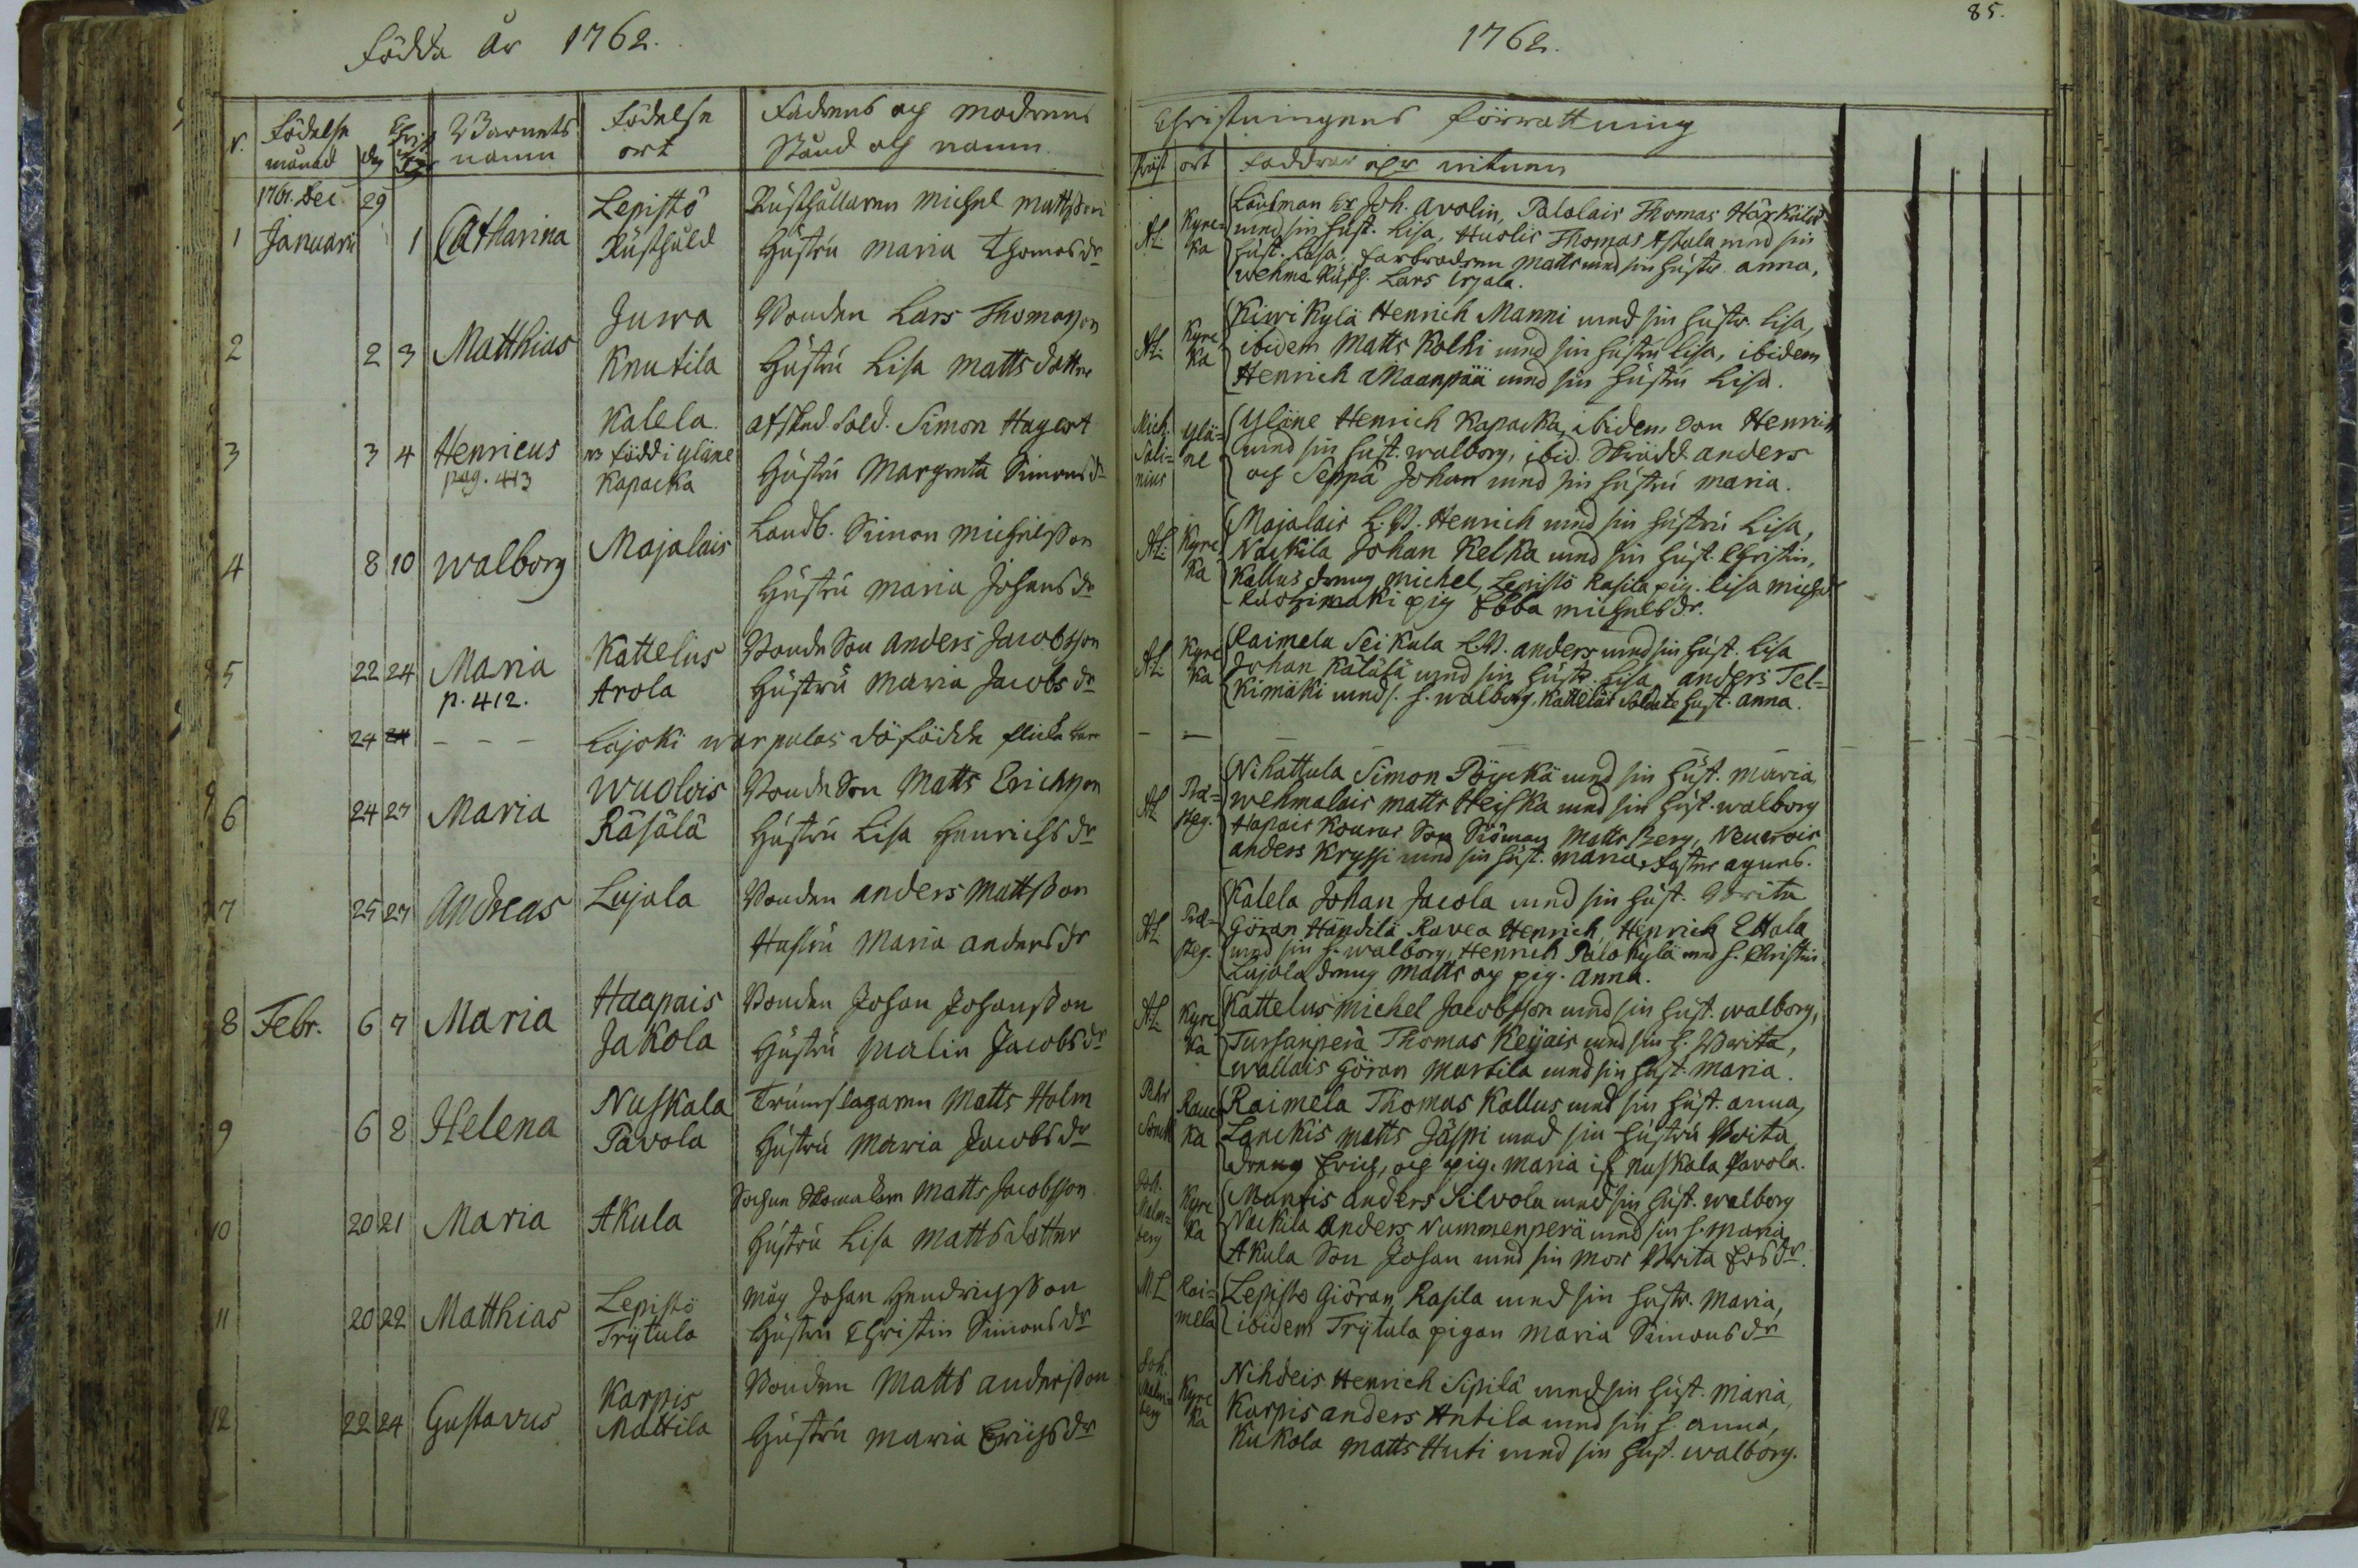 Födda År 1762.
N.
Födelse
månad
dag
Christ
dag
Barnets
namn
Födelse
ort
Fadrens och modrens
Stånd och namn
1761. Dec. 29
1 Januarii 1 Catharina
Lepistö
Rüsthåld
Rüsthållaren Michel Mattsson
Hüstrü Maria Thomasdr
2 2 3 Matthias
Juwa
Knutila
Bonden Lars Thomasson
Hüstrü Lisa Matts dotter
3 3 4 Henricus
pag. 413
Kalela
född i Yläne
Kapacka
afsked. Sold. Simon Hagert
Hüstrü Margreta Simonsdr
4 8 10 Walborg
Majalais
Landb. Simon Michelsson
Hüstrü Maria Johansdr
5 22 24 Maria
p. 412.
Kattelus
Arola
Bonde Son Anders Jacobsson
Hüstrü Maria Jacobs dr
24 24 - - - Lajoki warpulas döfödde flicke barn
6 24 27 Maria
Wuolois
Räsälä
Bonde Son Matts Erichsson
Hüstrü Lisa Henrichs dr
7 25 27 Andreas
Lujala
Bonden Anders Mattsson
Hustru Maria Anders dr
8 Febr. 6 7 Maria
Haapais
Jakola
Bonden Johan Johansson
Hüstrü Malin Jacobs dr
9 6 8 Helena
Nuskala
Pavola
Trumslagaren Matts Holm
Hüstrü Maria Jacobs dr
10 20 21 Maria
Akula
Sochne Skomakaren Matts Jacobsson
Hüstrü Lisa Mattsdotter
11 20 22 Matthias
Lepistö
Trÿtula
Måg Johan Hendrichsson
Hüstrü Christin Simons dr
12 22 24 Gustavus
Karpis
Mattila
Bonden Matts Andersson
Hüstrü Maria Erichs dr
1762.
85.
Christningens förrättning
Präst ort Faddrar och witnen
AL Kyrcka
Länsman Joh. Avolin, Palolais Thomas Härkälä
med sin hust. Lisa, Huolis Thomas Astala med sin
hust. Lisa, farbrodren Matts med sin hustr. Anna,
Wehma Rüsth. Lars Orjala.
AL Kyrcka
Kiwikylä Henrich Manni med sin hustr. Lisa,
ibidem Matts Kolhi med sin hüstrü Lisa, ibidem
Henrich Maanpää med sin hüstrü Lisa.
Mich. Salinius Yläne
Yläne Henrich Kapacka, ibidem Son Henrich
med sin hust. Walborg, ibid. Skrädd. Anders
och Seppä Johan med sin hüstrü Maria.
AL Kyrcka
Majalais L.B. Henrich med sin hüstrü Lisa,
Nackila Johan Kelka med sin hust. Christin,
Kallus dreng Michel, Lepistö Rasila pig. Lisa Michelsdr
pig Ebba Michelsdr.
AL Kyrcka
Raimela Seikula L.B. Anders med sin hust. Lisa
Johan Kälälä med sin hustr. Lisa, Anders Telkimäki
med s. h. Walborg, Kattelus Soldate hust. Anna.
AL Prästeg.
Nihattula Simon Pöyckä med sin hust. Maria
Wehmalais Matts Heiska med sin hust. Walborg
Hapais Kourus Son Siöman Matts Berg, Neuwois
Anders Kryssi med sin hust. Maria, faster Agnes.
AL Prästeg.
Kalela Johan Jacola med sin hust. Brita
Göran Händilä Ravea Henrich, Henrich Ettala
med sin h. Walborg, Henrich Palo Kylä med h. Christin
Lujala dreng Matts och pig. Anna.
AL Kyrcka
Kattelus Michel Jacobsson med sin hust. Walborg,
Tursanperä Thomas Keijais med sin h. Brita,
Wallais Göran Martila med sin hust. Maria.
Pehr Raucka
Raimela Thomas Kallus med sin hust. Anna,
Lanckis Matts Jäspi med sin hüstrü Brita,
dreng Erich, och pig. Maria if. Nuskala Pavola.
Joh. Malmberg Kyrcka
Muntis Anders Silvola med sin hust. Walborg
Nackila Anders Nummenperä med sin h. Maria,
Akula Son Johan med sin mor Brita Ersdr.
M.L Raimela
Lepistö Giöran Rasila med sin hustr. Maria,
ibidem Trÿtula pigan Maria Simons dr
Joh. Malmberg Kyrcka
Nihdeis Henrich Sipilä med sin hust. Maria,
Karpis Anders Antila med sin h. Anna,
Kukola Matts Huti med sin hust. Walborg.